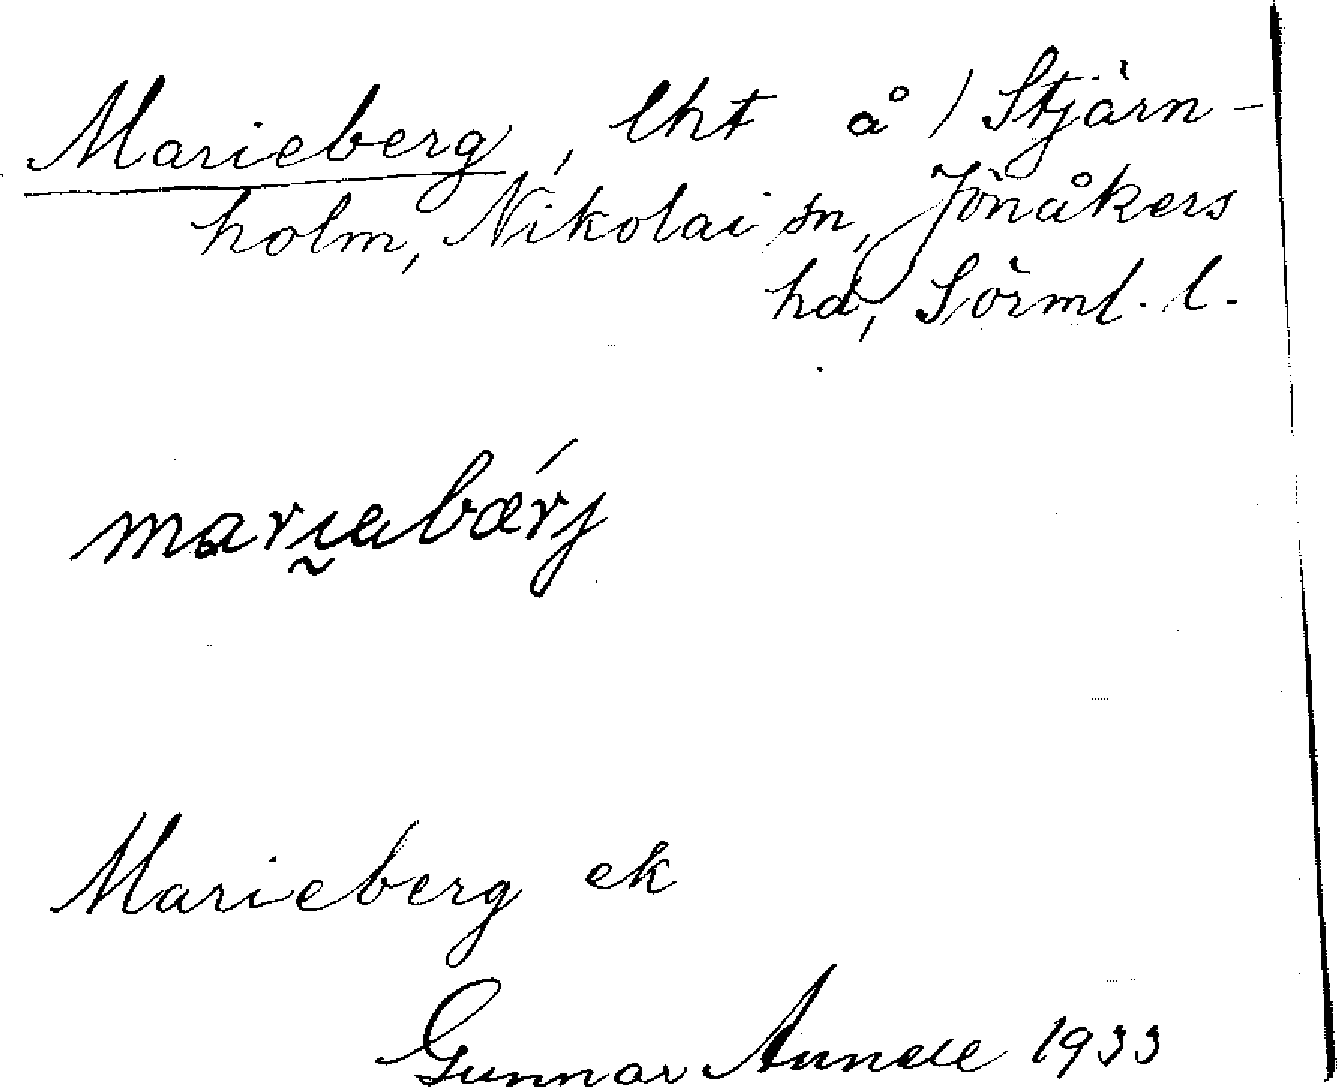 Marieberg, lht å / Stjärn-
holm, Nikolai sn, Jönåkers
hd, Sörml. l.
marıabǽrj
Marieberg ek
Gunnar 1933